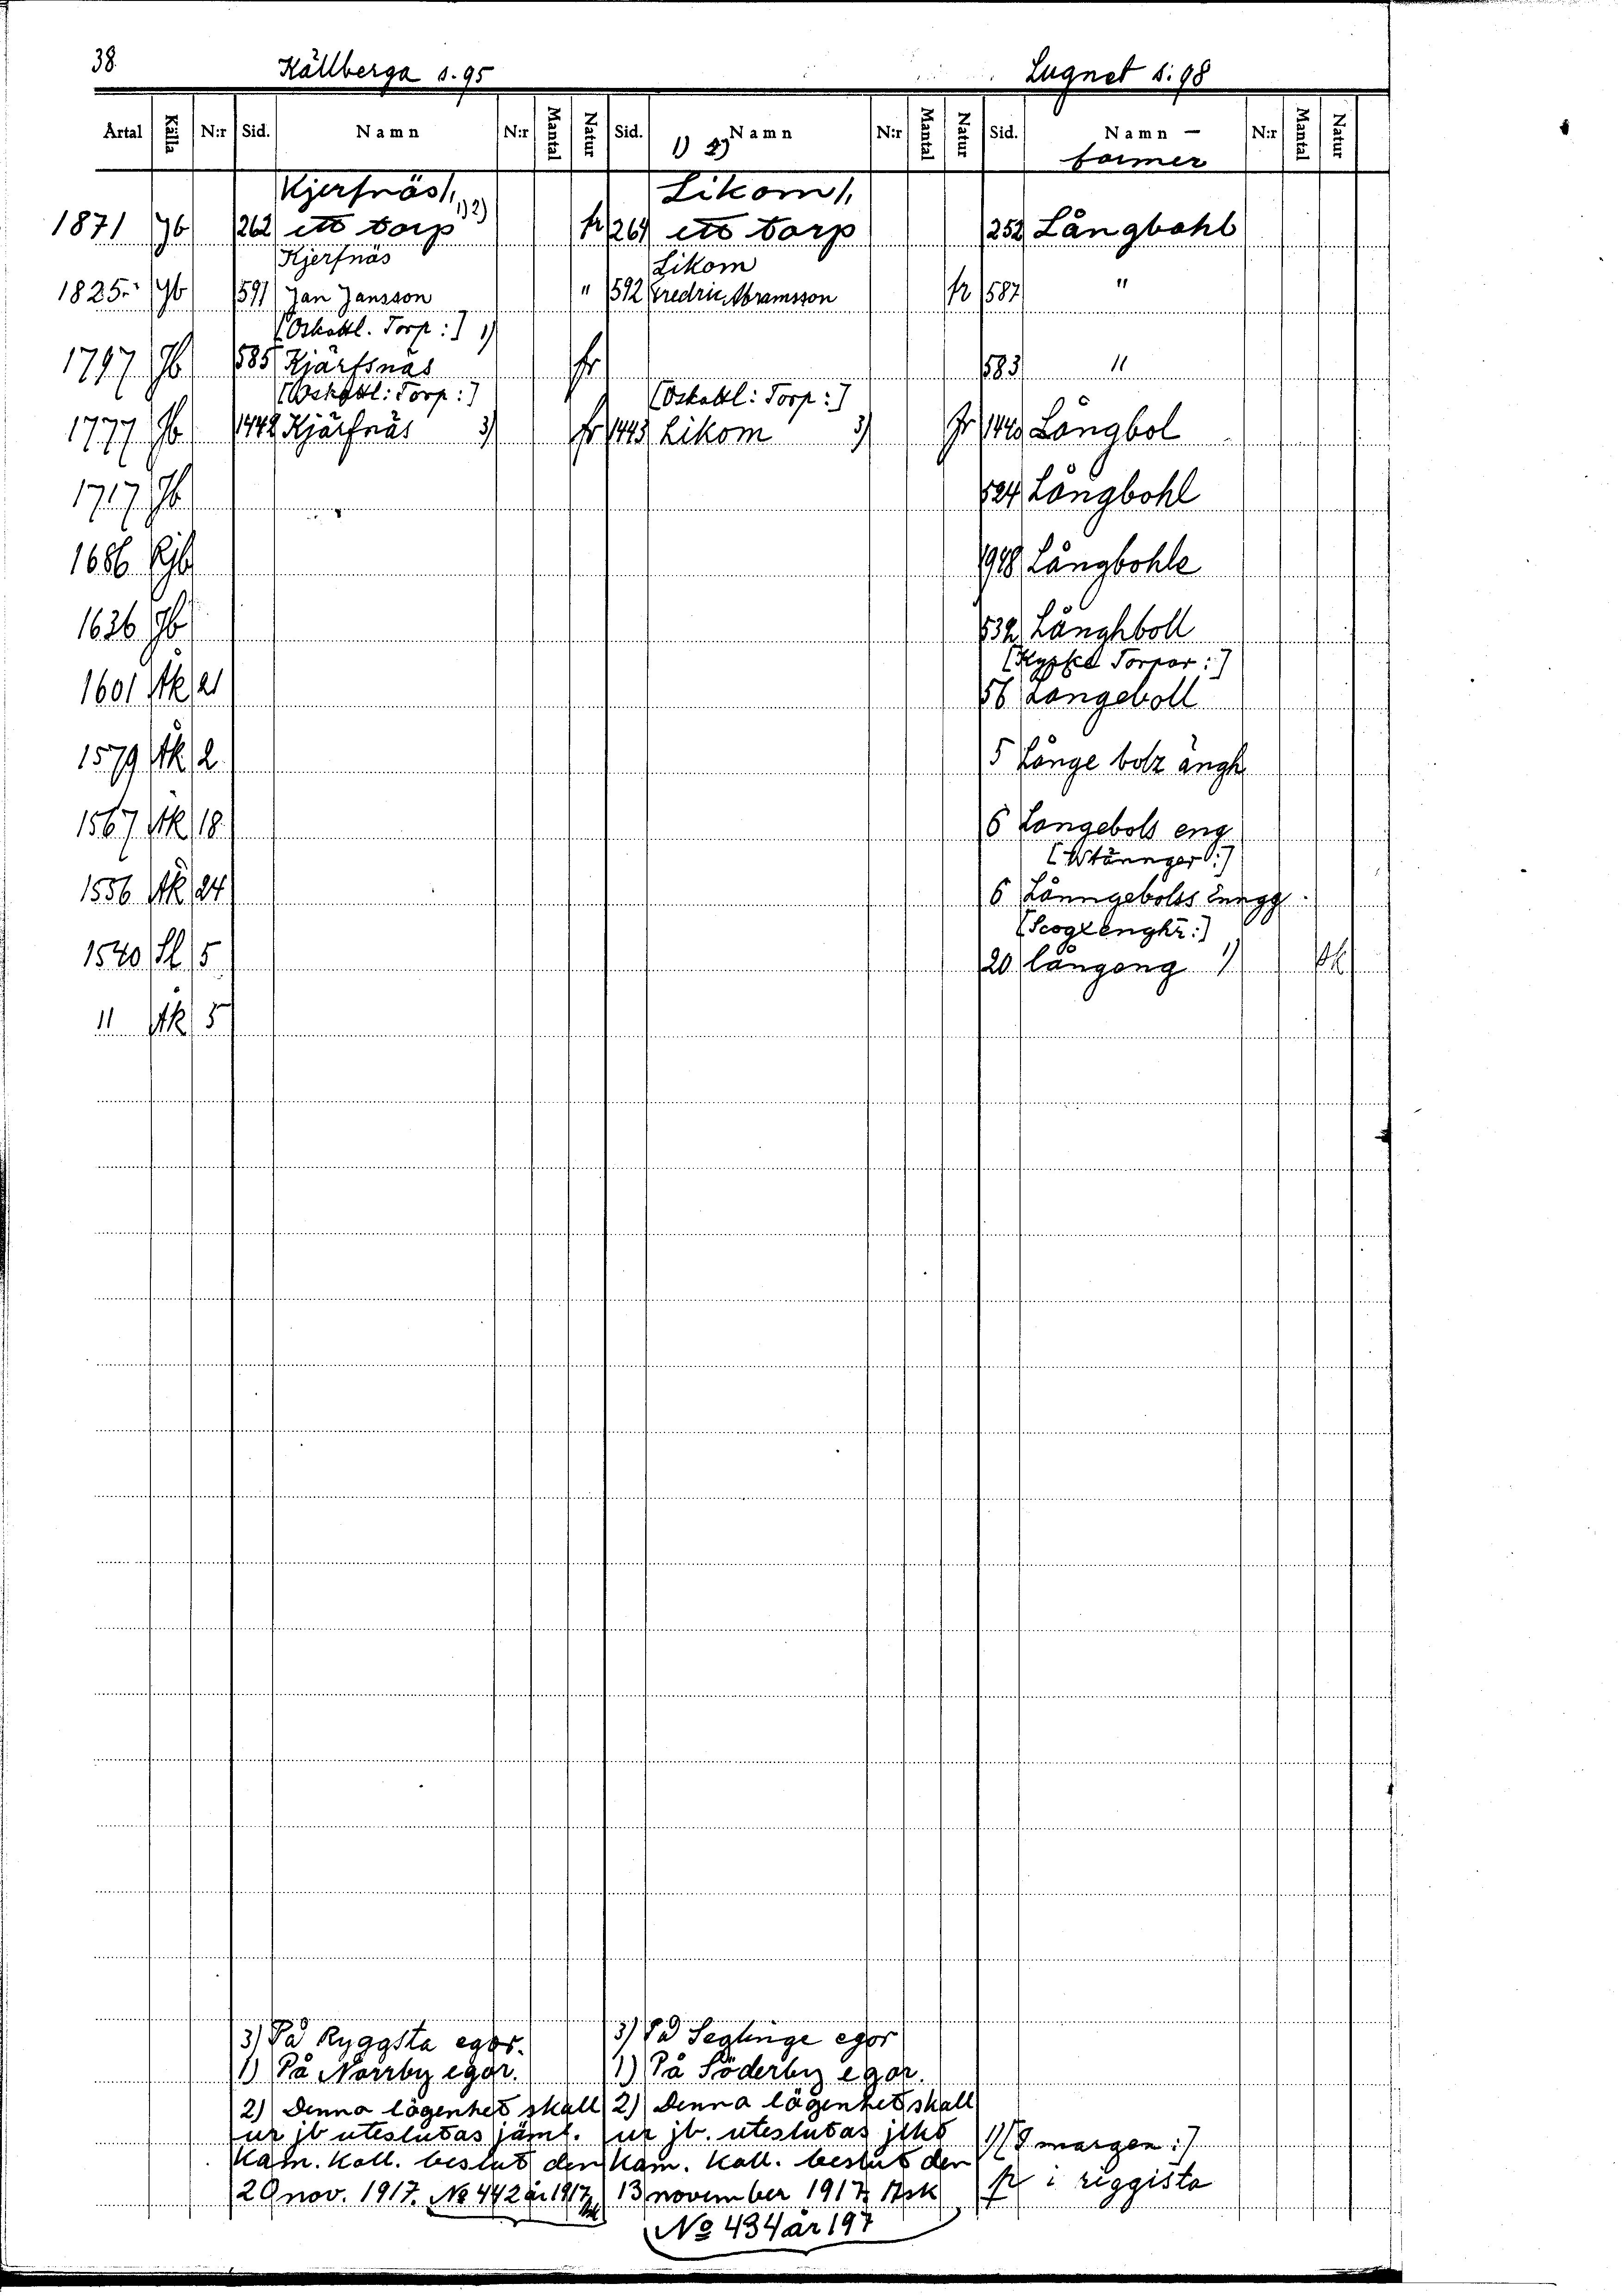 38 Källberga s. 95 Lugnet s: 98
Årtal Källa N:r Sid. Namn N:r Mantal Natur Sid. 1) 2) Namn N:r Mantal Natur Sid. Namn — N:r Mantal Natur
former
Kjerfnäs/, Likom/,
1871 Jb 262 ett torp 1) 2) fr 264 ett torp 252 Långbohl
Kjerfnäs Likom
1825 Jb 591 Jan Jansson " 592 Fredric Abramsson fr 587 "
[Oskattl. Torp:] 1)
1797 Jb 585 Kjärfsnäs fr 583 "
[Oskattl: Torp:] [Oskattl: Torp:]
1777 Jb 1442 Kjärfnäs 3) fr 1443 Likom 3) fr 1440 Långbol
1717 Jb 524 Långbohl
1686 Rjb 1948 Långbohle
1636 Jb 532 Långhboll
Torpar:]
1601 Åk 21 56 Langeboll
1579 Åk 2 5 Långe bolz ängh
1567 Åk 18 6 Langebols eng
[Utännger:]
1556 Åk 24 6 Lånngebolss Enngg
[Scogxenghr:]
1540 Sl 5 20 långeng 1) sk
" Åk 5
3) På Ryggsta egor. 3) På Seglinge egor
1) På Norrby egor. 1) På Söderby egor.
2) Denna lägenhet skall 2) Denna lägenhet skall
ur jb uteslutas jäml. ur jb. uteslutas jlkt 1) [I margen:]
Kam. Koll. beslut den Kam. Koll. beslut den
20 nov. 1917. No 442 år 1917 13 november 1917 Ask fr i riggista
No 434 år 197